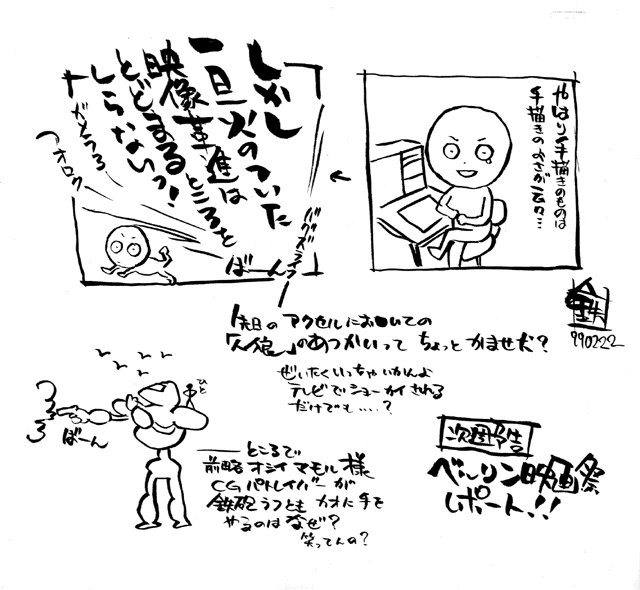 やはり手描きのものは
手描きのよさが云々…
しかし
一旦火のついた
映像革進は
ところを
とどまる
しらないっ!
バグズライフ
ばーん
ガメラ3
アオロク
先日のアクセルにおいての
「人狼」のあつかいって ちょっと かませだ?
ぜいたくいっちゃいかんよ
テレビでショーカイされる
だけでも‥‥?
鉄
990222
ひと
ばーん
――ところで
前略 オシイマモル様
CGパトレイバーが
鉄砲うつとき カオに手を
やるのはなぜ?
笑ってんの?
次回予告
ベルリン映画祭
レポート!!